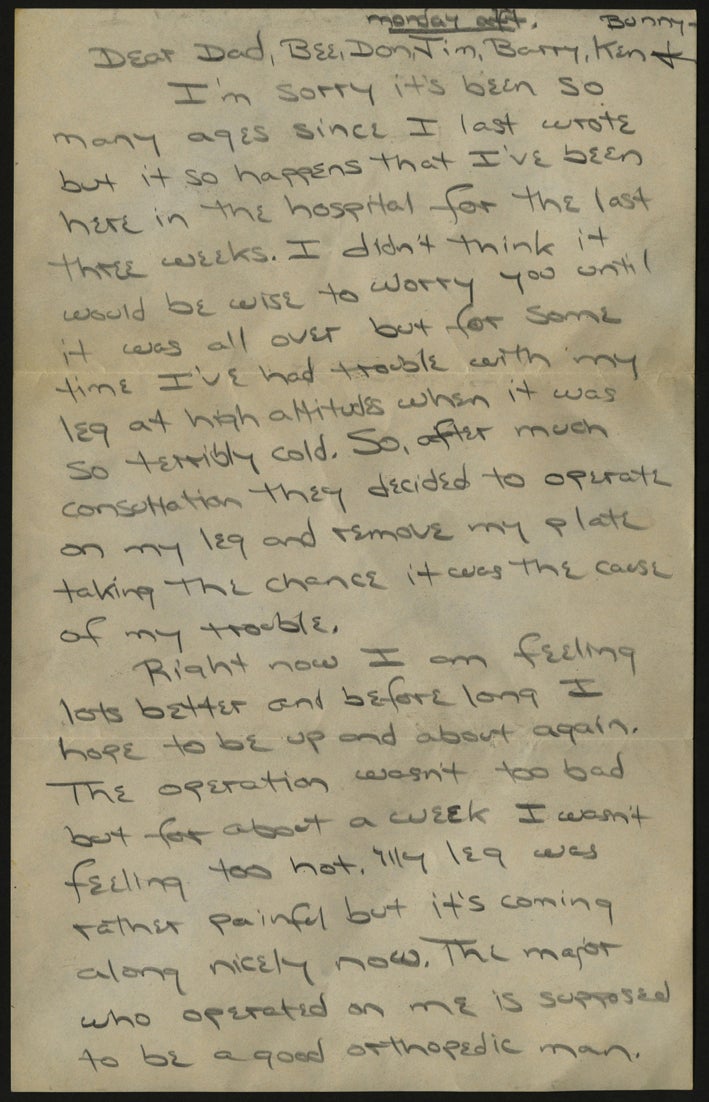 monday aft.
Dear Dad, Bee, Don, Jim, Barry, Ken + Bunny-
I'm sorry it's been so
many ages since I last wrote
but it so happens that I've been
here in the hospital for the last
three weeks. I didn't think it
would be wise to worry you until
it was all over but for some
time I've had trouble with my
leg at high altitudes when it was
so terribly cold. So, after much
consultation they decided to operate
on my leg and remove my plate
taking the chance it was the cause
of my trouble.
Right now I am feeling
lots better and before long I
hope to be up and about again.
The operation wasn't too bad
but for about a week I wasn't
feeling too hot. My leg was
rather painful but it's coming
along nicely now. The major
who operated on me is supposed
to be a good orthopedic man.